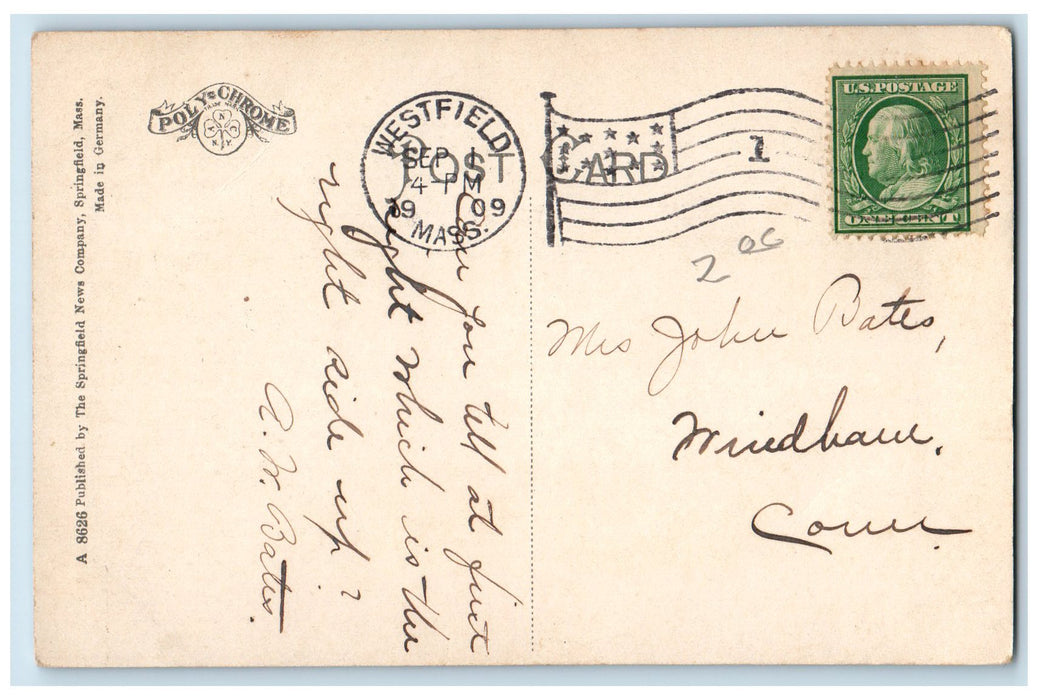 A 8626 Published by The Springfield News Company, Springfield, Mass.
Made in Germany.
POLY-CHROME
POST CARD
WESTFIELD
SEP 1
4-PM
1909
MASS.
1
U.S. POSTAGE
ONE CENT
2 00
Can you tell at first
sight which is the
right side up?
A. W. Bates.
Mrs John Bates,
Windham,
Conn.